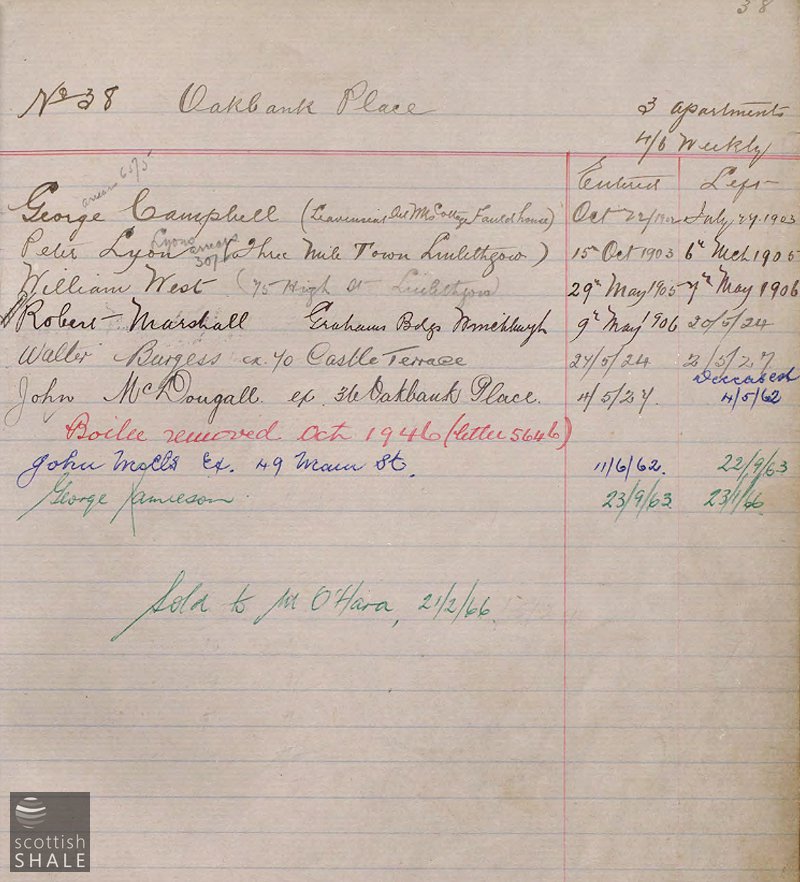 38
No 38 Oakbank Place
3 apartments
4/6 Weekly
Entered Left
arrears
George Campbell ( Cottage Fauldhouse) Oct 22/1902 July 29.1903
Lyons arrears 30/
Peter Lyon Three Mile Town Linlithgow) 15th Oct 1903 6th Mch 1905
William West (75 High St Linlithgow) 29th May 1905 7th May 1906
Robert Marshall Grahams Bdgs Winchburgh 9th May 1906 20/5/24
Walter Burgess ex. 70 Castle Terrace 24/5/24 2/5/27
Deceased
John McDougall. ex. 36 Oakbank Place. 4/5/27. 4/5/62
Boiler removed Oct 1946 (letter 5646)
John Ex. 49 Main St. 11/6/62. 22/9/63
George Jamieson 23/9/63 23/1/66
Sold to M O'Hara, 21/2/66.
scottish
SHALE